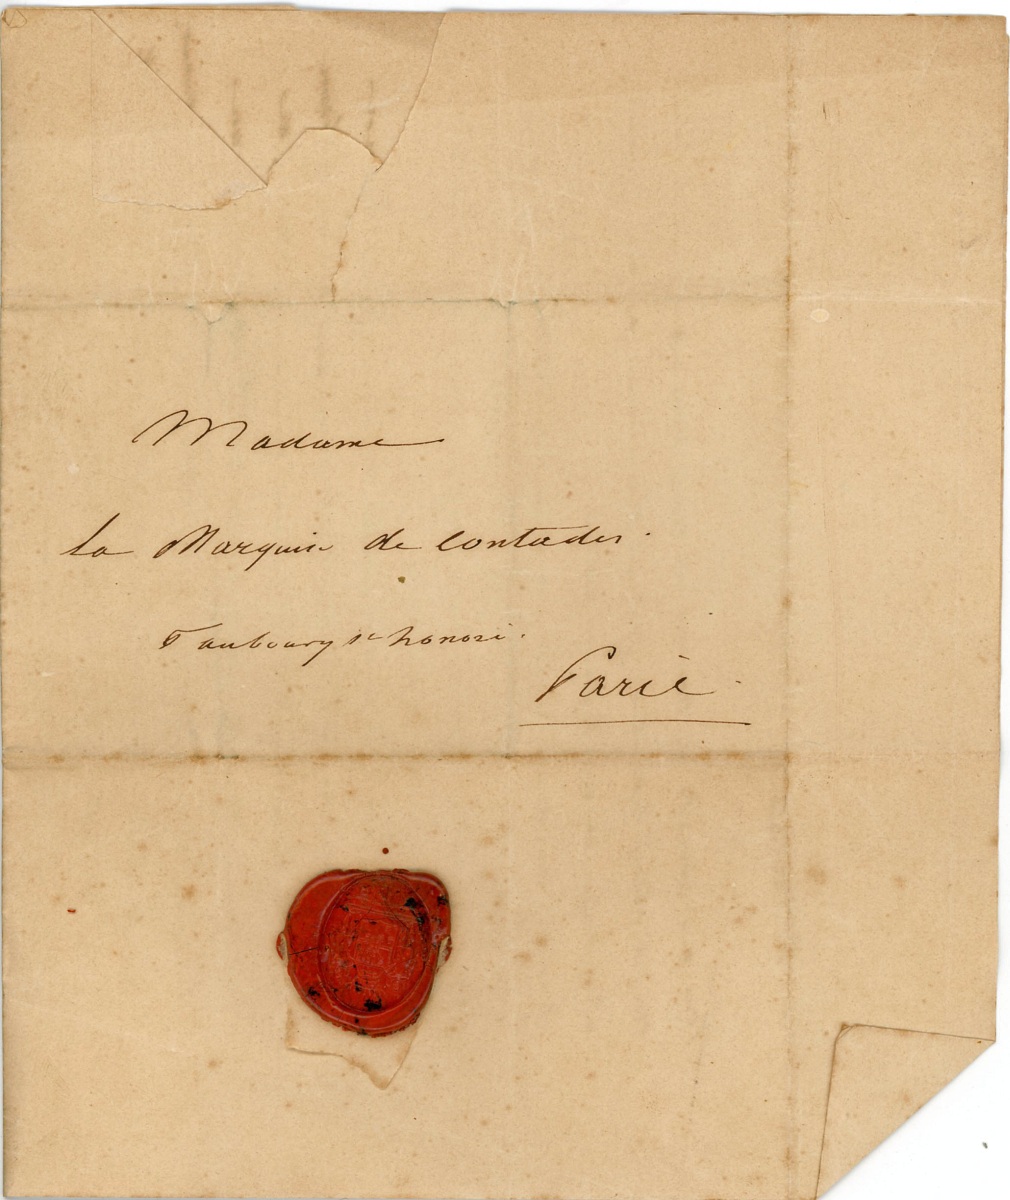 Madame
la Marquise de Contades.
Faubourg st honoré.
Paris.